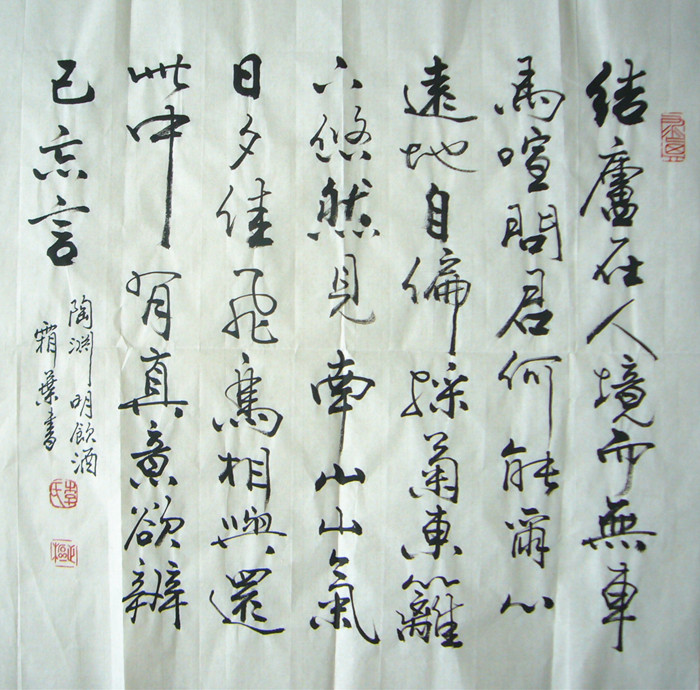 結廬在人境而無車
馬喧問君何能爾心
遠地自偏採菊東籬
下悠然見南山山氣
日夕佳飛鳥相與還
此中有真意欲辨
已忘言
陶淵明飲酒
霜葉書